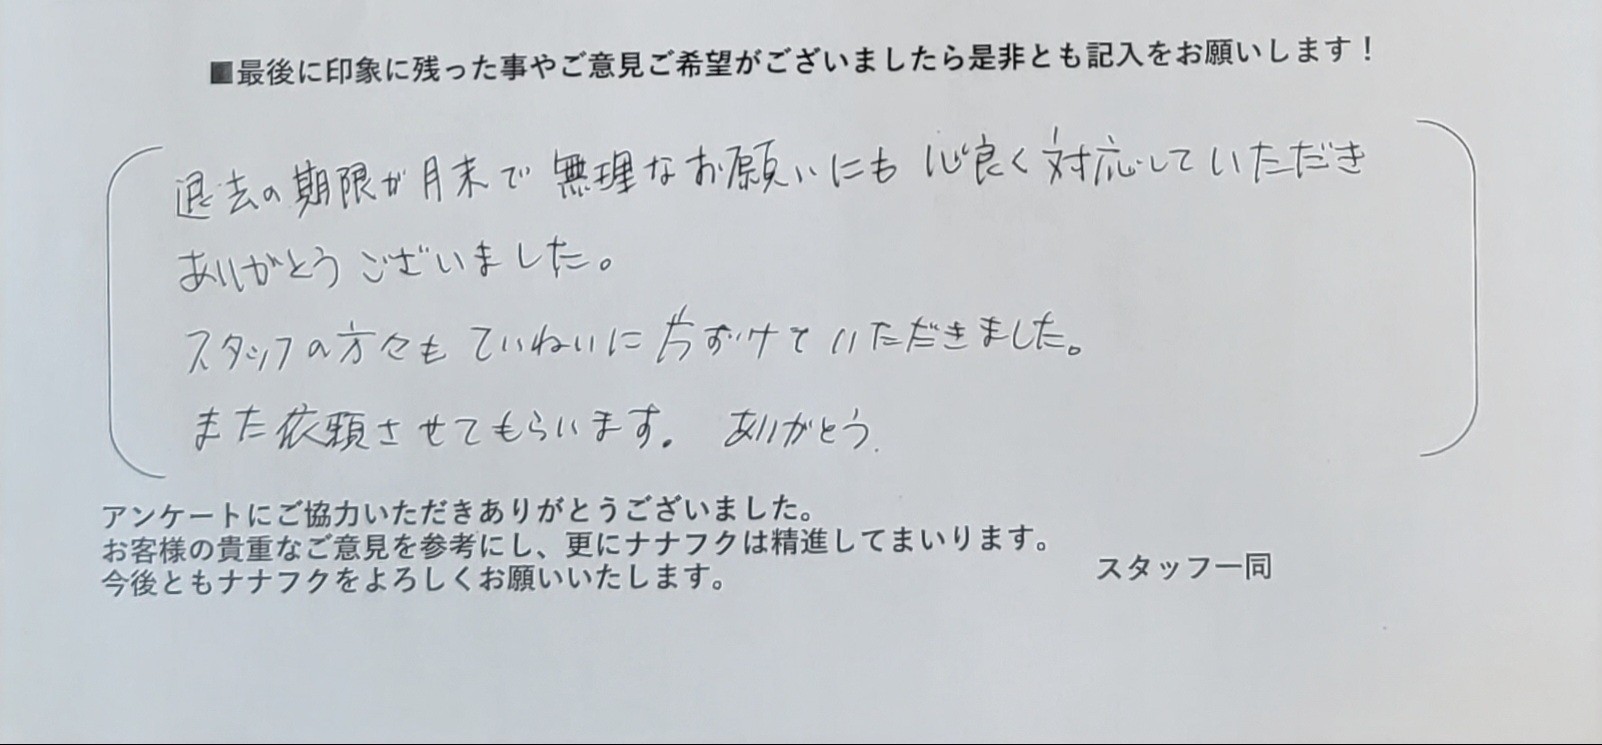 ■最後に印象に残った事やご意見ご希望がございましたら是非とも記入をお願いします！
退去の期限が月末で無理なお願いにも心良く対応していただき
ありがとうございました。
スタッフの方々もていねいに片ずけていただきました。
また依頼させてもらいます。ありがとう.
アンケートにご協力いただきありがとうございました。
お客様の貴重なご意見を参考にし、更にナナフクは精進してまいります。
今後ともナナフクをよろしくお願いいたします。
スタッフ一同